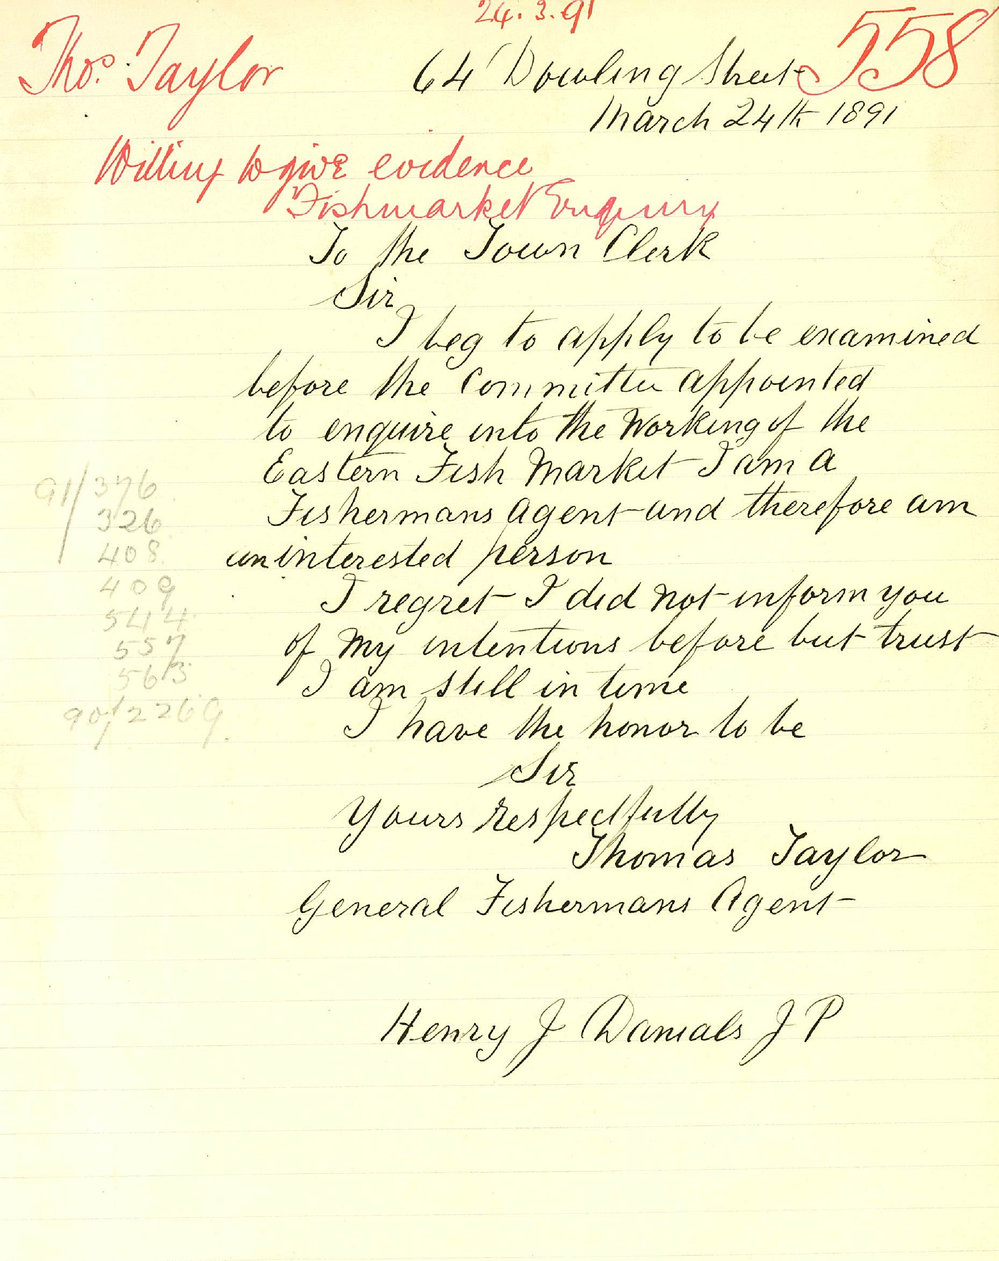 24.3.91
558
Thos. Taylor
64 Dowling Street
March 24th 1891
Willing to give evidence
Fishmarket Enquiry
To the Town Clerk
Sir
I beg to apply to be examined
before the Committee appointed
to enquire into the Working of the
Eastern Fish Market I am a
Fishermans Agent and therefore am
an interested person
I regret I did not inform you
of my intentions before but trust
I am still in time
I have the honor to be
Sir
Yours respectfully
Thomas Taylor
General Fishermans Agent
Henry J Danials J P
91/376
326
408
409
544
557
563
90/2269